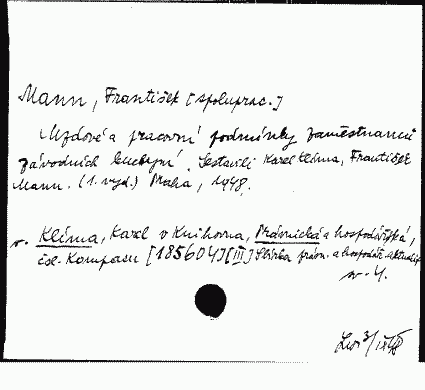 Mann, František [spoluprac.]
Mzdové a pracovní podmínky zaměstnanců
závodních kuchyní. Sestavili Karel Klíma, František
Mann. (1. vyd.) Praha, 1948.
v. Klíma, Karel v Knihovna, Právnická a hospodářská,
čsl. Kompasu [185604][III] Sbírka právn. a hospodář. aktualit